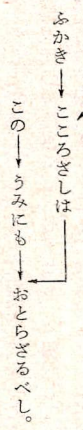 ふかき→こころざしは
この→うみにも→おとらざるべし。